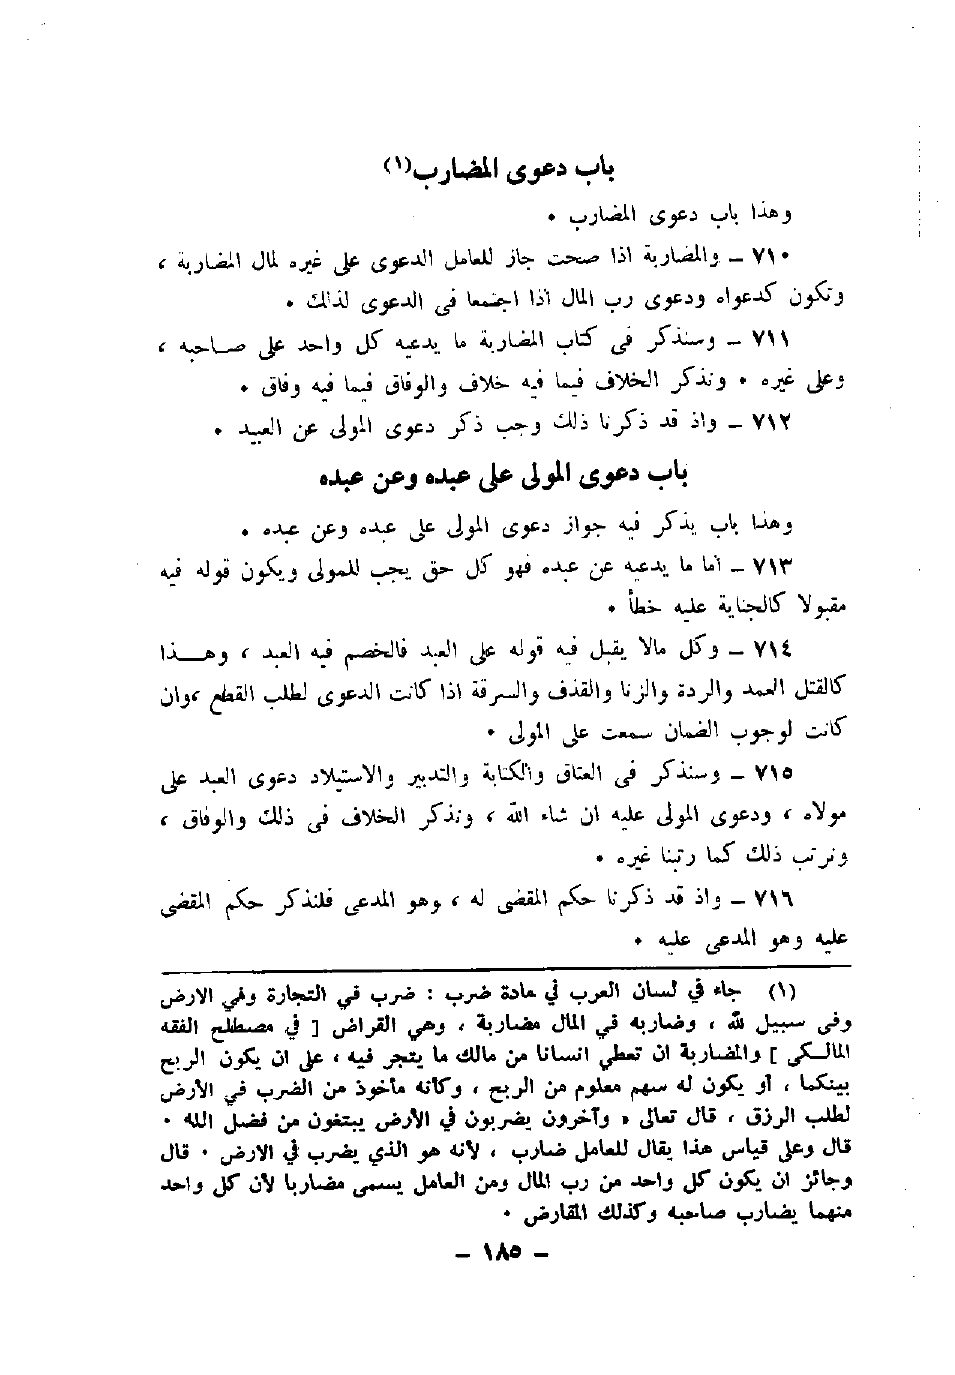 باب دعوى المضارب(١)
وهذا باب دعوى المضارب .
٧١٠ – والمضاربة اذا صحت جاز للعامل الدعوى على غيره لمال المضاربة ،
وتكون كدعواه ودعوى رب المال اذا اجتمعا في الدعوى لذلك .
٧١١ – وسنذكر في كتاب المضاربة ما يدعيه كل واحد على صاحبه ،
وعلى غيره . ونذكر الخلاف فيما فيه خلاف والوفاق فيما فيه وفاق .
٧١٢ – واذ قد ذكرنا ذلك وجب ذكر دعوى المولى عن العبيد .
باب دعوى المولى على عبده وعن عبده
وهذا باب يذكر فيه جواز دعوى المولى على عبده وعن عبده .
٧١٣ – أما ما يدعيه عن عبده فهو كل حق يجب للمولى ويكون قوله فيه
مقبولا كالجناية عليه خطأ .
٧١٤ – وكل مالا يقبل فيه قوله على العبد فالخصم فيه العبد ، وهــــذا
كالقتل العمد والردة والزنا والقذف والسرقة اذا كانت الدعوى لطلب القطع ،وان
كانت لوجوب الضمان سمعت على المولى .
٧١٥ – وسنذكر في العتاق والكتابة والتدبير والاستيلاد دعوى العبد على
مولاه ، ودعوى المولى عليه ان شاء الله ، ونذكر الخلاف في ذلك والوفاق ،
ونرتب ذلك كما رتبنا غيره .
٧١٦ – واذ قد ذكرنا حكم المقضى له ، وهو المدعى فلنذكر حكم المقضى
عليه وهو المدعى عليه .
(١) جاء في لسان العرب في مادة ضرب : ضرب في التجارة وفي الارض
وفي سبيل لله ، وضاربه في المال مضاربة ، وهي القراض [ في مصطلح الفقه
المالـكى ] والمضاربة ان تعطي انسانا من مالك ما يتجر فيه ، على ان يكون الربح
بينكما ، أو يكون له سهم معلوم من الربح ، وكأنه مأخوذ من الضرب في الأرض
لطلب الرزق ، قال تعالى « وآخرون يضربون في الأرض يبتغون من فضل الله .
قال وعلى قياس هذا يقال للعامل ضارب ، لأنه هو الذي يضرب في الارض . قال
وجائز ان يكون كل واحد من رب المال ومن العامل يسمى مضاربا لأن كل واحد
منهما يضارب صاحبه وكذلك المقارض .
– ١٨٥ –